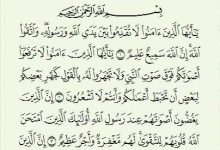 بِسْمِ ٱللَّهِ ٱلرَّحْمَٰنِ ٱلرَّحِيمِ
يَٰٓأَيُّهَا ٱلَّذِينَ ءَامَنُوا۟ لَا تُقَدِّمُوا۟ بَيْنَ يَدَىِ ٱللَّهِ وَرَسُولِهِۦ وَٱتَّقُوا۟
ٱللَّهَ إِنَّ ٱللَّهَ سَمِيعٌ عَلِيمٌ ١ يَٰٓأَيُّهَا ٱلَّذِينَ ءَامَنُوا۟ لَا تَرْفَعُوٓا۟
أَصْوَٰتَكُمْ فَوْقَ صَوْتِ ٱلنَّبِىِّ وَلَا تَجْهَرُوا۟ لَهُۥ بِٱلْقَوْلِ كَجَهْرِ بَعْضِكُمْ
لِبَعْضٍ أَن تَحْبَطَ أَعْمَٰلُكُمْ وَأَنتُمْ لَا تَشْعُرُونَ ٢ إِنَّ ٱلَّذِينَ
يَغُضُّونَ أَصْوَٰتَهُمْ عِندَ رَسُولِ ٱللَّهِ أُو۟لَٰٓئِكَ ٱلَّذِينَ ٱمْتَحَنَ
ٱللَّهُ قُلُوبَهُمْ لِلتَّقْوَىٰ لَهُم مَّغْفِرَةٌ وَأَجْرٌ عَظِيمٌ ٣ إِنَّ ٱلَّذِينَ